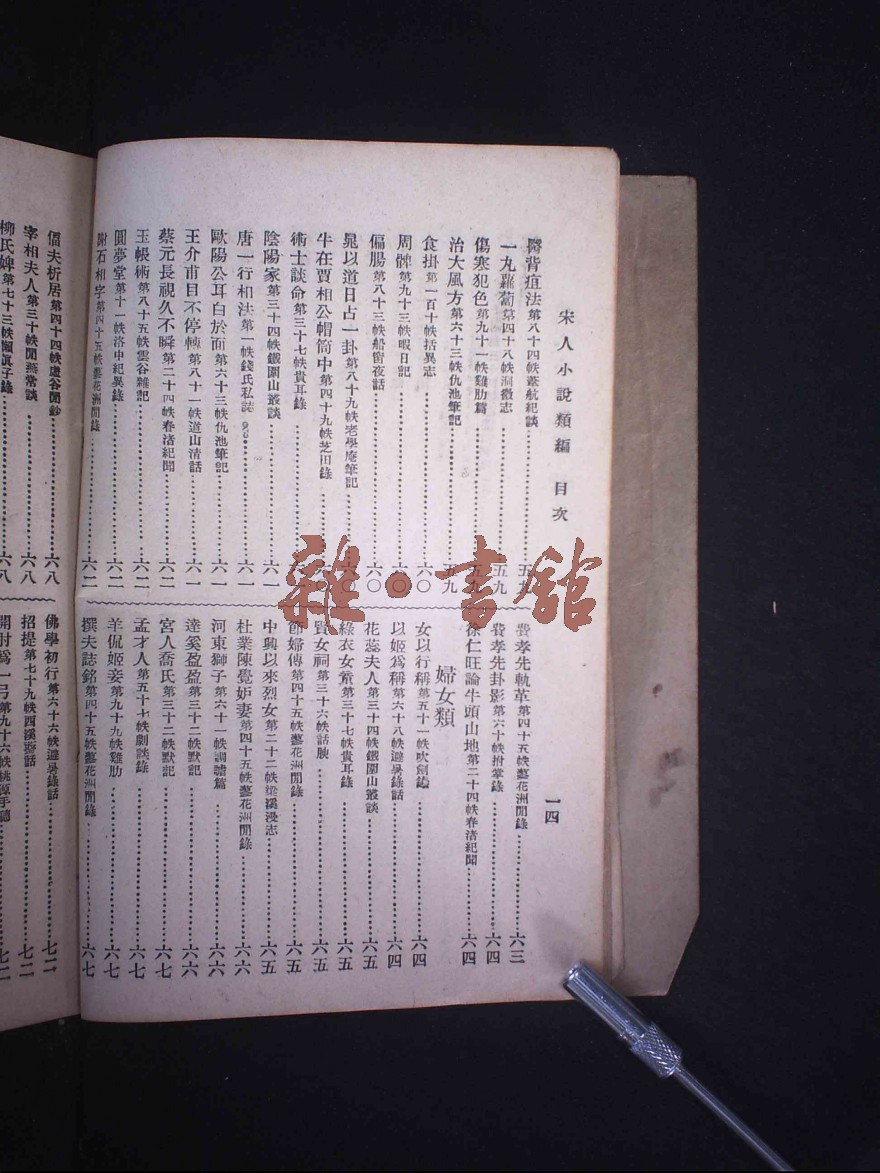 宋人小說類編 目次
一四
醫背疽法第八十四帙葦航紀談 五九
一九蘿蔔第四十八帙洞微志 五九
傷寒犯色第九十一帙雞肋篇 五九
治大風方第六十三帙仇池筆記 五九
食掛第一百十帙括異志 六〇
周髀第九十三帙暇日記 六〇
偏腸第八十三帙船窗夜話 六〇
晁以道日占一卦第八十九帙老學庵筆記 六〇
牛在賈相公帽筒中第四十九帙芝田錄
術士談命第三十七帙貴耳錄
陰陽家第三十四帙鐵圍山叢談 六一
唐一行相法第一帙錢氏私誌 六一
歐陽公耳白於面第六十三帙仇池筆記 六一
王介甫目不停轉第八十一帙道山清話 六一
蔡元長視久不瞬第二十四帙春渚紀聞 六二
玉帳術第八十五帙雲谷雜記 六二
圓夢堂第十一帙洛中紀異錄 六二
謝石相字第四十五帙藝花洲閒錄 六二
費孝先軌革第四十五帙藝花洲閒錄 六三
費孝先卦影第六十帙拊掌錄 六四
徐仁旺論牛頭山地第二十四帙春渚紀聞 六四
婦女類
女以行稱第五十一帙吹劍錄 六四
以姬爲稱第六十八帙避暑錄話 六四
花蕊夫人第三十四帙鐵圍山叢談 六五
綠衣女童第三十七帙貴耳錄 六五
賢女祠第三十六帙話腴 六五
節婦傳第四十五帙藝花洲閒錄 六五
中興以來烈女第二十二帙梁溪漫志 六五
杜業陳覺妒妻第四十五帙藝花洲閒錄 六六
河東獅子第六十一帙調謔篇 六六
達奚盈盈第三十二帙默記 六六
宮人喬氏第三十二帙默記 六六
孟才人第五十七帙劇談錄 六七
羊侃姬妾第九十九帙雞肋 六七
撰夫誌銘第四十五帙藝花洲閒錄 六七
偣夫析居第四十四帙虛谷閒鈔 六八
宰相夫人第三十帙閒燕常談 六八
柳氏婢第七十三帙嬾眞子錄 六八
佛學初行第六十八帙避暑錄話 七二
招提第七十九帙西溪叢話 七二
開肘爲一弓第九十六帙 七二
雜〇書館